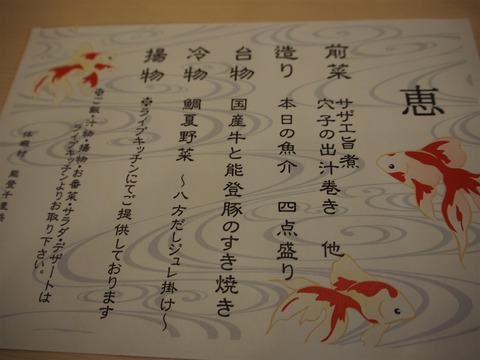 恵
前菜 サザエ旨煮
穴子の出汁巻き 他
造り 本日の魚介 四点盛り
台物 国産牛と能登豚のすき焼き
冷物 鯛夏野菜 ～八方だしジュレ掛け～
揚物 ※ライブキッチンにてご提供しております
※ご飯・汁物・揚物・お番菜・サラダ・デザートは
ライブキッチンよりお取り下さい。
休暇村 能登千里浜